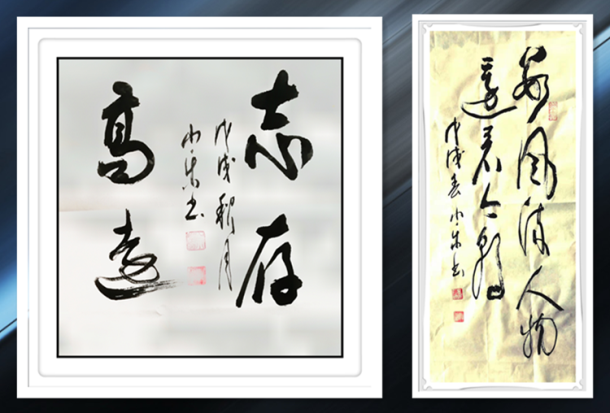 志存
高远
戊戌秋月
小朱书
数风流人物
还看今朝
戊戌春小朱书